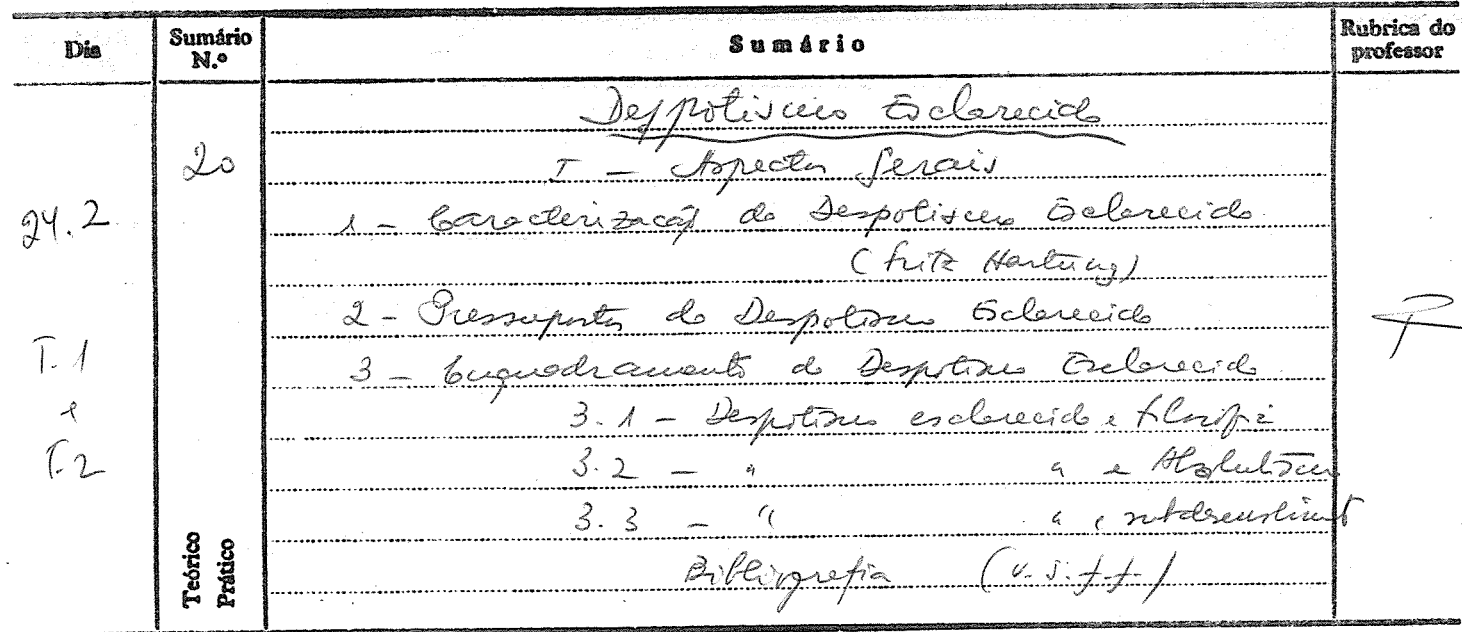 Dia Sumário N.º Sumário Rubrica do professor
Despotismo Esclarecido
20 I - Aspectos Gerais
24.2 1 - Caracterização do Despotismo Esclarecido
(Fritz Hartung)
2 - Pressupostos do Despotismo Esclarecido
T.1 3 - Enquadramento do Despotismo Esclarecido
e 3.1 - Despotismo esclarecido e filosofia
T.2 3.2 - " " e Absolutismo
3.3 - " " e subdesenvolvimento
Teórico Prático Bibliografia (v. s. f. f.)